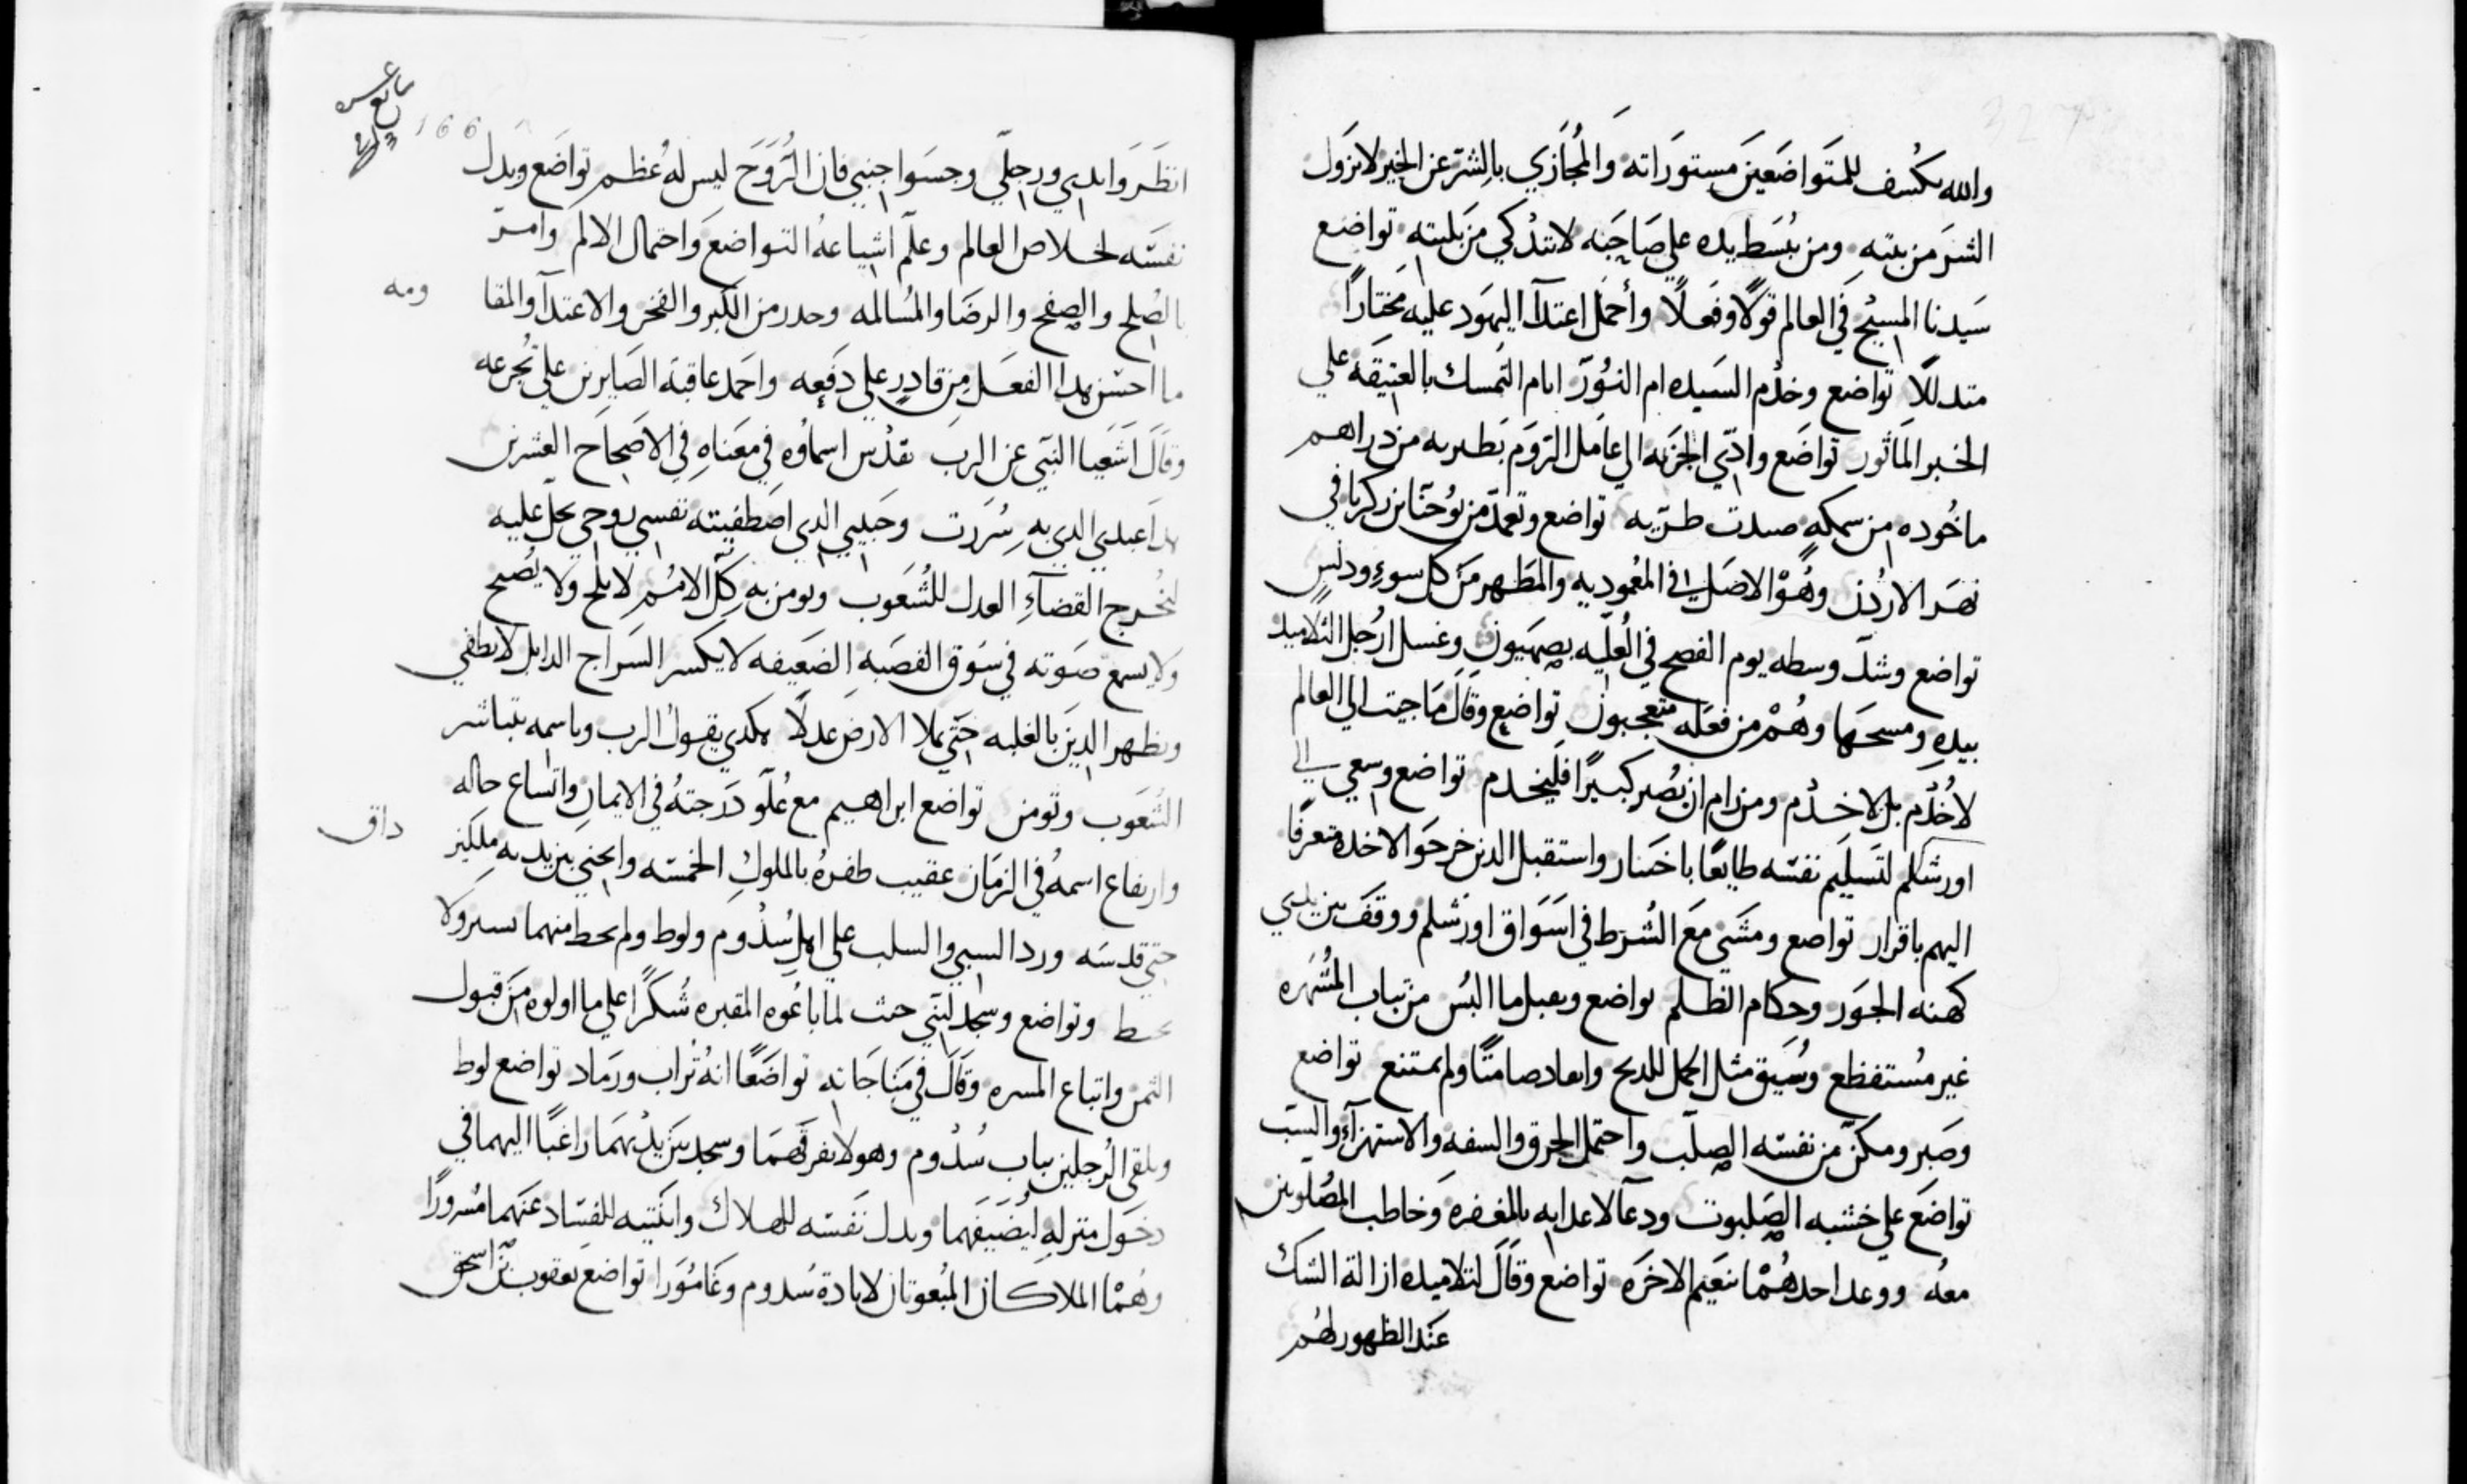 والله يكشف للمتواضعين مستوراته والمجازي بالشر عن الخير لا يزول
الشر من بيته ومن يبسط يده على صاحبه لا تتذكى من بليته تواضع
سيدنا المسيح في العالم قولًا وفعلًا وأحمل اعتدآ اليهود عليه مختارًا
متدللًا تواضع وخدم السيده ام النور ايام التمسك بالعتيقه على
الخبر الماثور تواضع وادي الجزيه الي عامل الروم بطبريه من دراهم
ماخوده من سمكه صيدت طريه تواضع وتعمد من يوحنا بن زكريا في
نهر الاردن وهو الاصل في المعموديه والمطهر من كل سوء ودنس
تواضع وشد وسطه يوم الفصح في العليه بصهيون وغسل ارجل التلاميد
بيده ومسحها وهم من فعله متعجبون تواضع وقال ما جيت الي العالم
لاخدم بل لاخدم ومن رام ان يصير كبيرًا فليخدم تواضع وسعي الي
اورشلم لتسليم نفسه طايعًا باختيار واستقبل الدين خرجوا لاخده متعرفًا
اليهم باقرار تواضع ومشي مع الشرط في اسواق اورشلم ووقف بين يدي
كهنه الجور وحكام الظلم تواضع وقبل ما البس من تياب المشهره
غير مستفظع وسيق مثل الحمل للدبح وانعاد صامتًا ولم يمتنع تواضع
وصبر ومكن من نفسه الصلب واحتمل الحرق والسفه والاستهزآء والسب
تواضع على خشبه الصلبوت ودعا لاعدايه بالمغفره وخاطب المصلوبين
معه ووعد احدهما بنعيم الاخره تواضع وقال لتلاميده ازالة الشك
عند الظهور لهم
166
انظروا يدي ورجلي وجسوا جنبي فان الروح ليس له عظم تواضع وبدل
نفسه لخلاص العالم وعلم اشياعه التواضع واحتمال الالم وامر
بالصلح والصفح والرضا والمسالمه وحدر من الكبر والفخر والاعتدآ والمقا ومه
ما احسن هدا الفعل من قادر على دفعه واحمد عاقبة الصابرين على تجرعه
وقال اشعيا النبي عن الرب تقدس اسماوه في معناه في الاصحاح العشرين
هدا عبدي الدي به سررت وحبيبي الدي اصطفيته نفسي روحي يحل عليه
ليخرج القضآء العدل للشعوب وتومن به كل الامم لا يلح ولا يصيح
ولا يسمع صوته في سوق القصبه الضعيفه لا يكسر السراج الدابل لا يطفي
ويظهر الدين بالغلبه حتي يملا الارض عدلًا هكدي يقول الرب وباسمه يتباشر
الشعوب وتومن تواضع ابراهيم مع علو درجته في الايمان واتساع حاله
وارتفاع اسمه في الزمان عقيب ظفره بالملوك الخمسه وانحني بين يديه ملكيز داق
حتي قدسه ورد السبي والسلب على اهل سدوم ولوط ولم يحط منهما بسير ولا
يحط وتواضع وسجد لبني حث لما باعوه المقبره شكرًا على ما اولوه من قبول
الثمن واتباع المسره وقال في مناجاته تواضعًا انه تراب ورماد تواضع لوط
وتلقى الرجلين بباب سدوم وهو لا يعرفهما وسجد بين يديهما راغبًا اليهما في
دخول منزله ليضيفهما وبدل نفسه للهلاك وابنتيه للفساد عنهما مسرورًا
وهما الملاكان المبعوتان لابادة سدوم وغامورا تواضع يعقوب بن اسحق